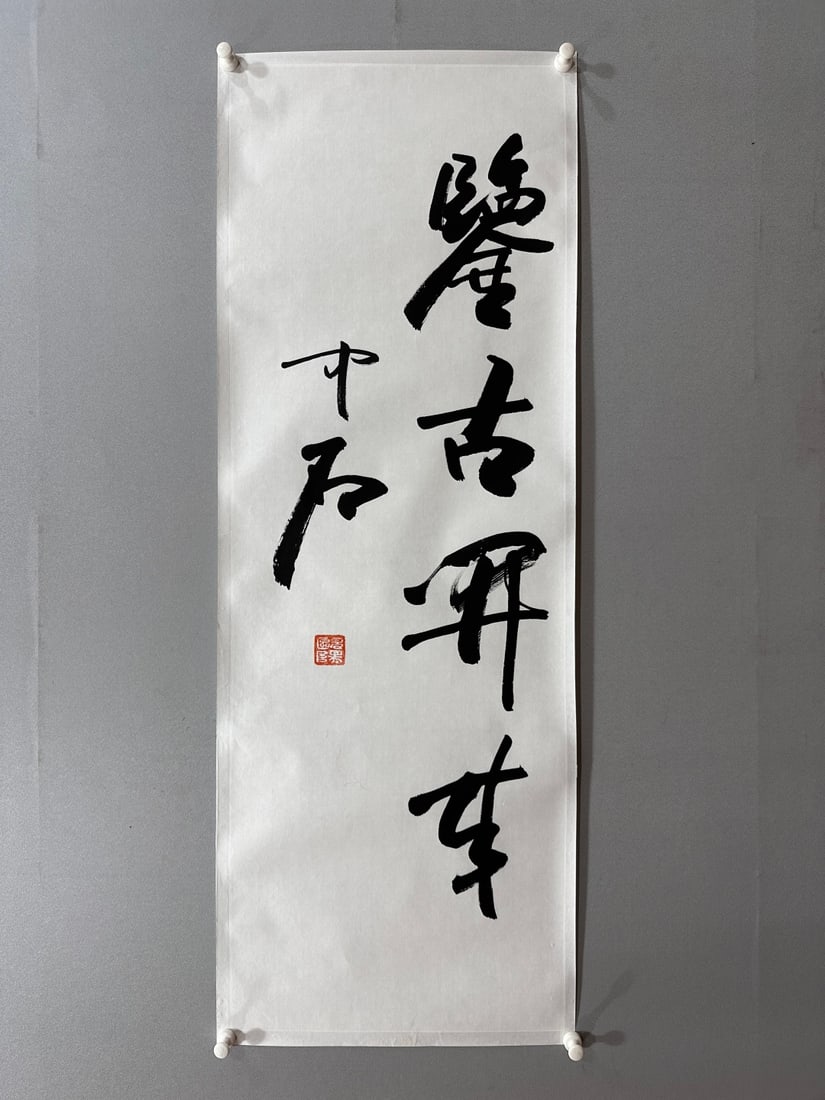 鑒古開来
中石